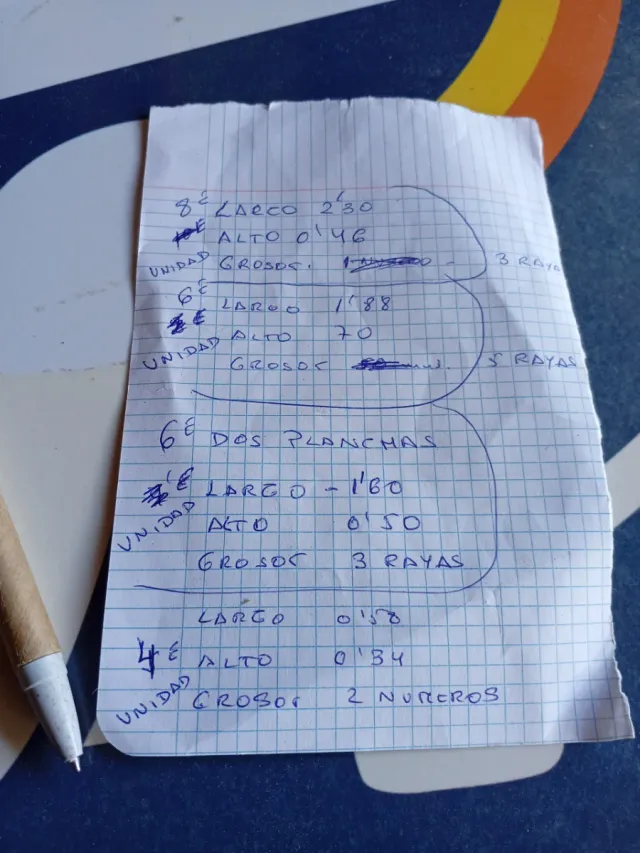 8€ LARGO 2'30
ALTO 0'46
UNIDAD GROSOR. 3 RAYA
6€ LARGO 1'88
ALTO 70
UNIDAD GROSOR 5 RAYAS
6€ DOS PLANCHAS
LARGO - 1'60
UNIDAD ALTO 0'50
GROSOR 3 RAYAS
LARGO 0'58
4€ ALTO 0'34
UNIDAD GROSOR 2 NUMEROS